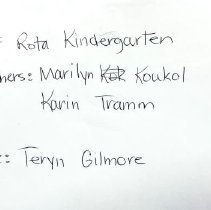 : Rota Kindergarten
ners: Marilyn Koukol
Karin Tramm
: Teryn Gilmore